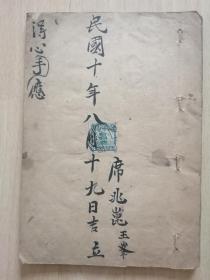 民國十年八月十九日吉立
席兆崑玉峯
得心手應